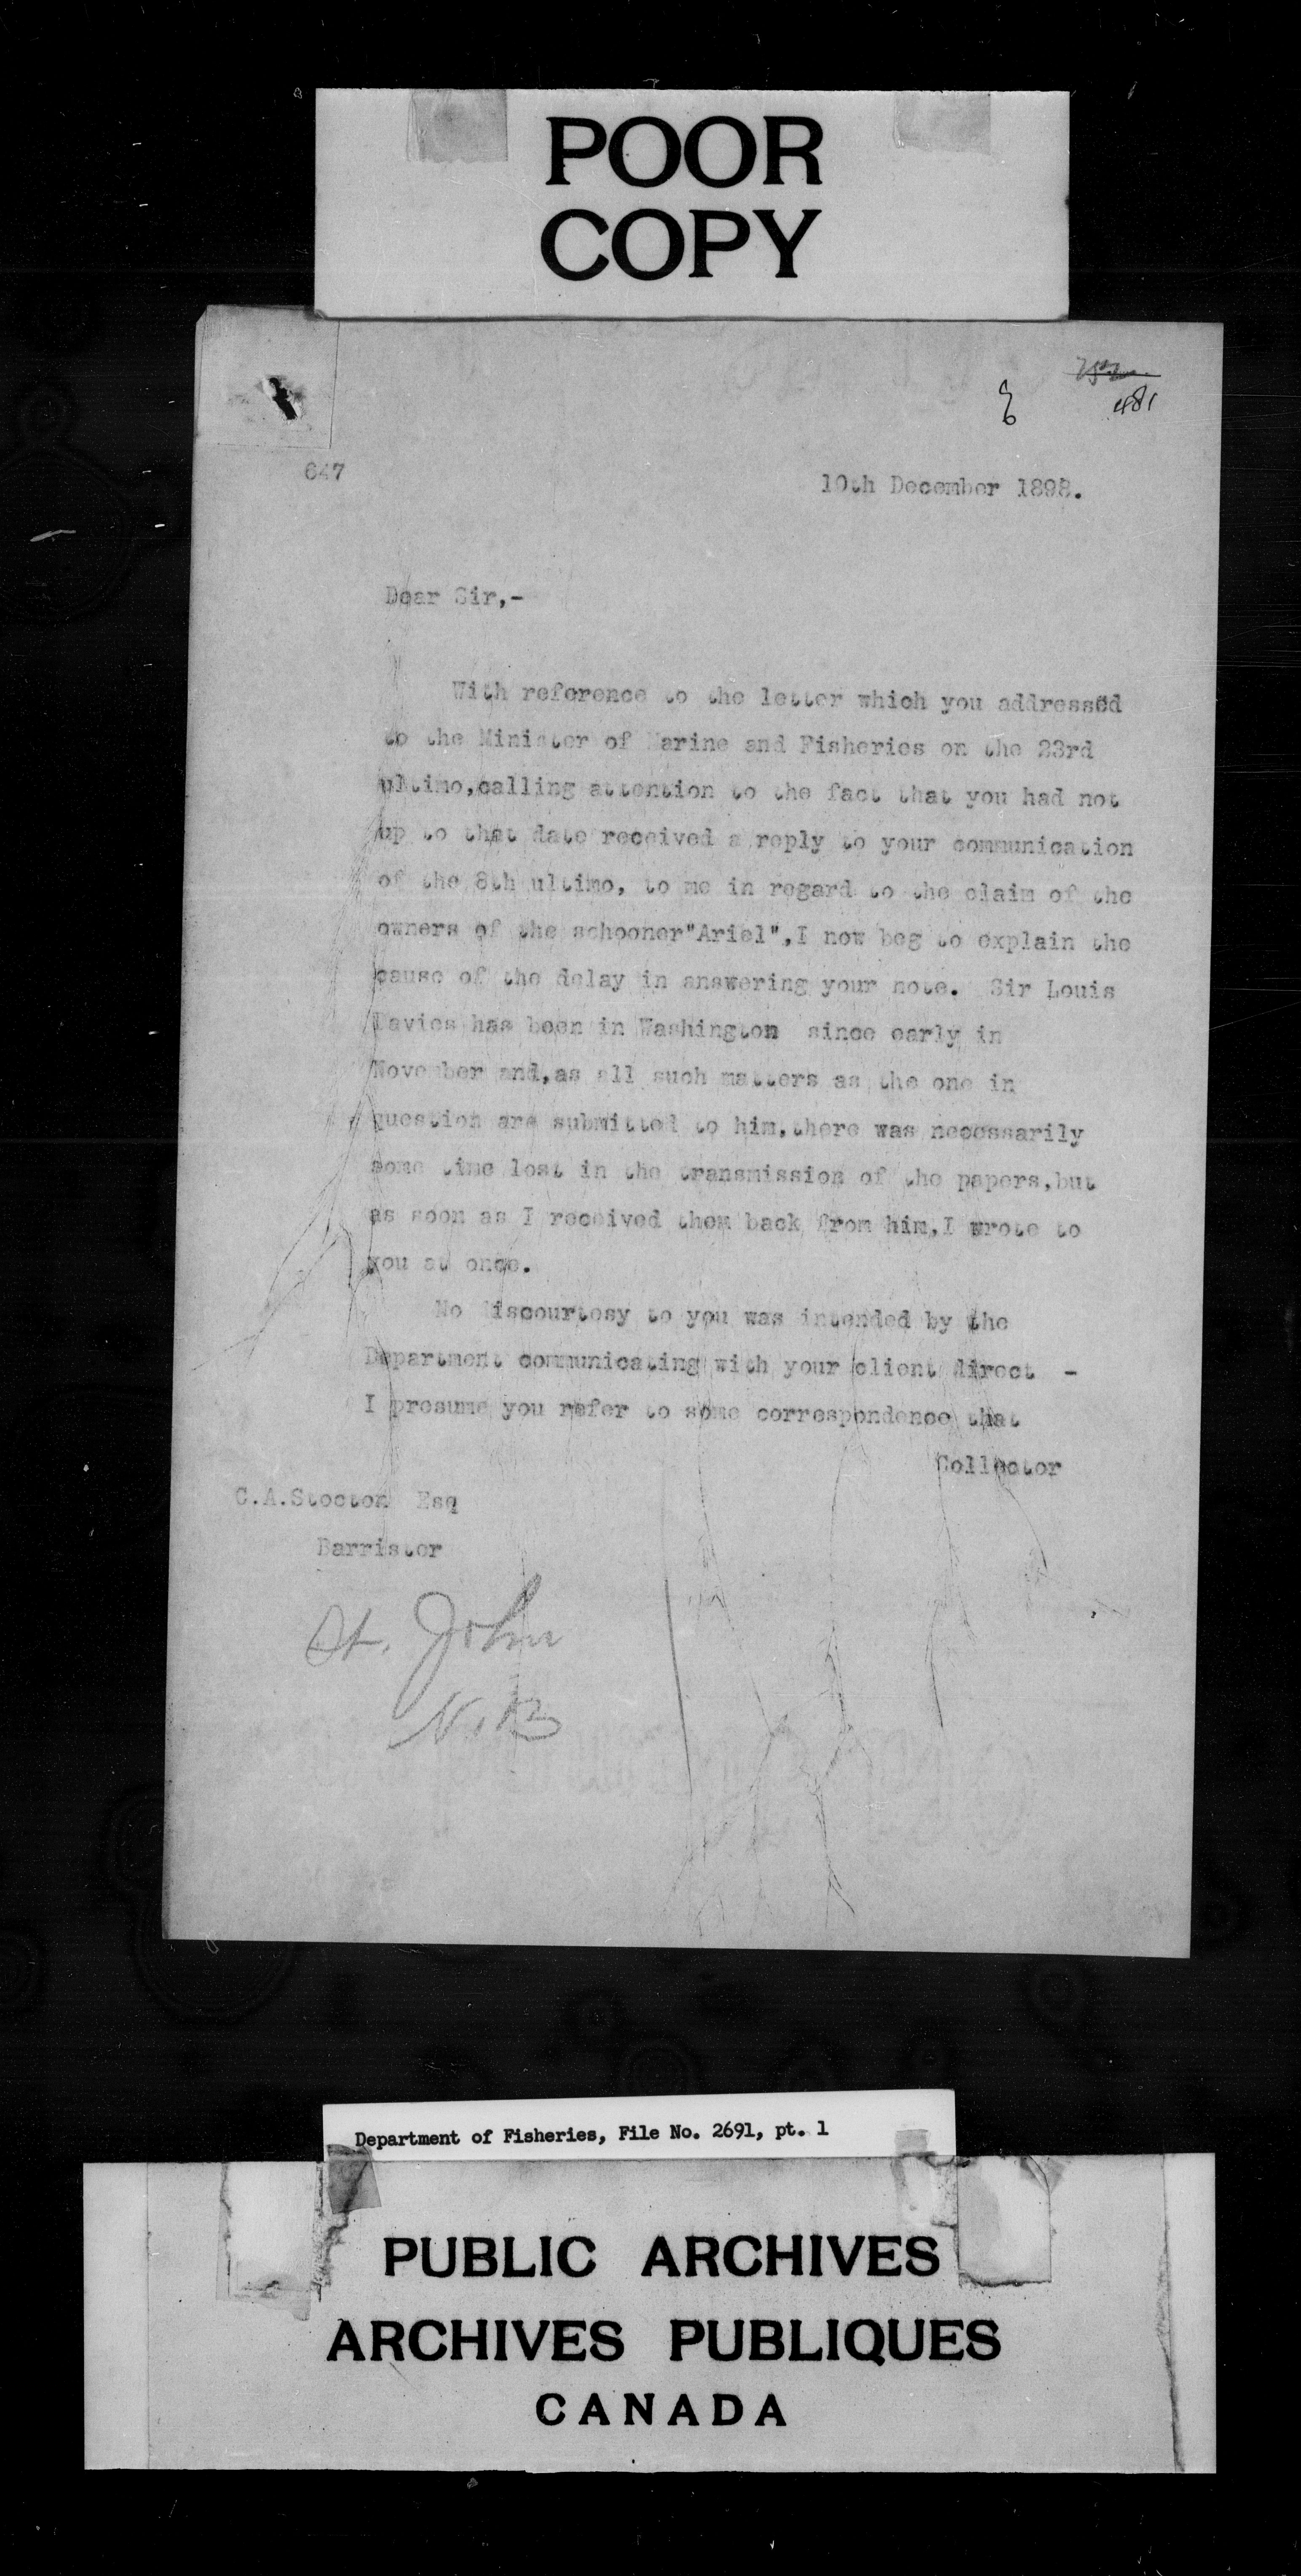 POOR
COPY
481
647
10th December 1898.
Dear Sir,-
With reference to the letter which you addressed
to the Minister of Marine and Fisheries on the 23rd
ultimo,calling attention to the fact that you had not
up to that date received a reply to your communication
of the 8th ultimo, to me in regard to the claim of the
owners of the schooner"Ariel",I now beg to explain the
cause of the delay in answering your note. Sir Louis
Davies has been in Washington since early in
November and,as all such matters as the one in
question are submitted to him,there was necessarily
some time lost in the transmission of the papers,but
as soon as I received them back from him,I wrote to
you at once.
No discourtesy to you was intended by the
Department communicating with your client direct -
I presume you refer to some correspondence that
Collector
C.A.Stocton Esq
Barrister
St. John
N.B
Department of Fisheries, File No. 2691, pt. 1
PUBLIC ARCHIVES
ARCHIVES PUBLIQUES
CANADA